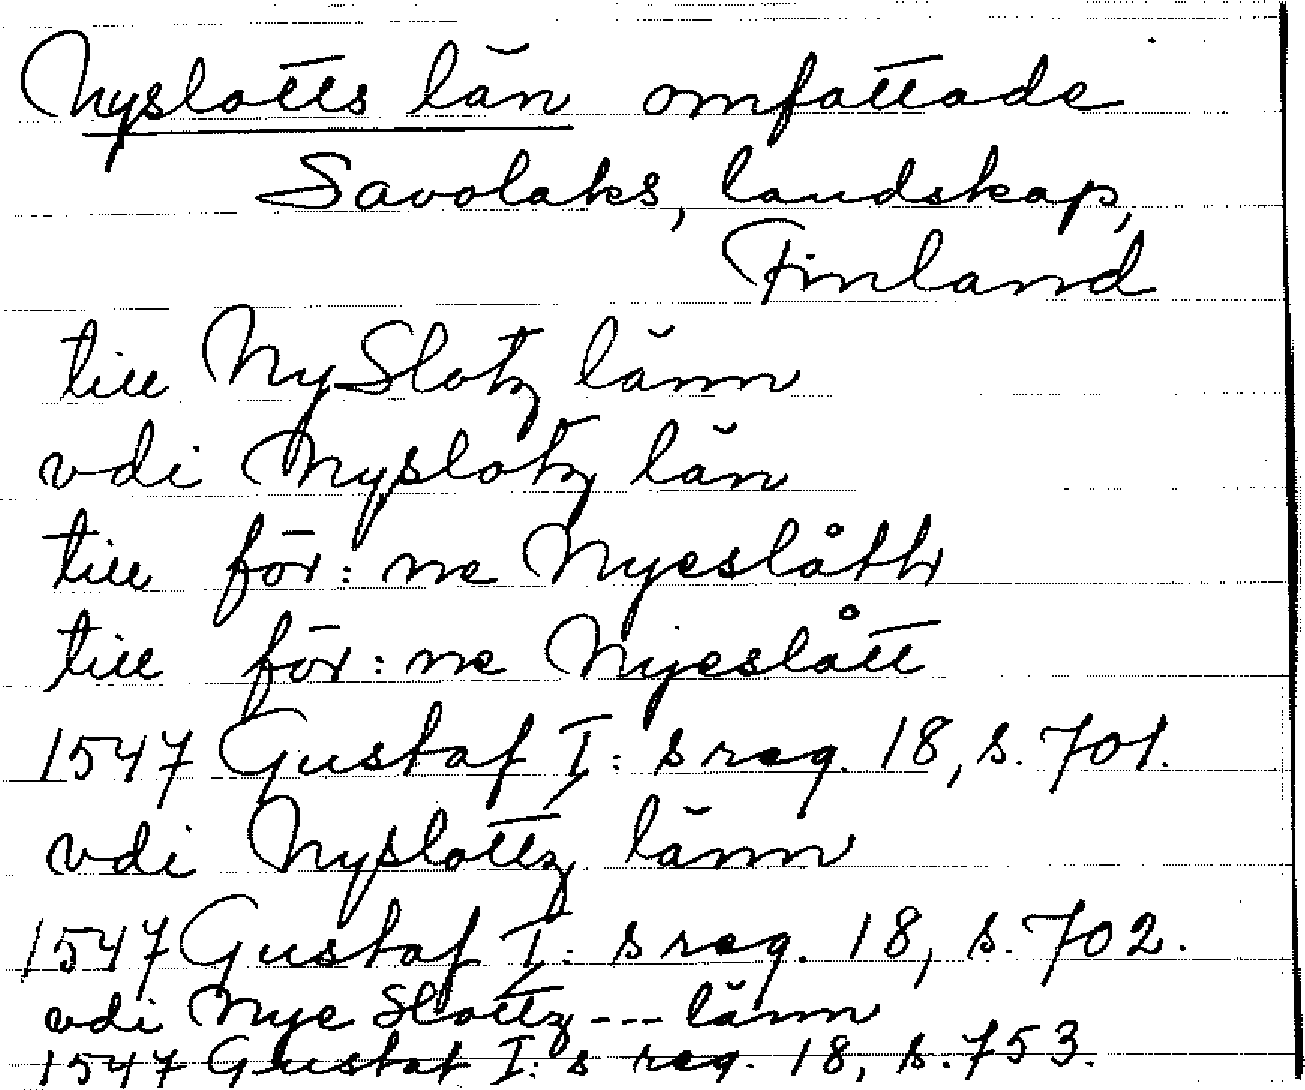 Nyslotts län omfattade
Savolaks, landskap,
Finland
till NySlotz länn
vdi Nyslotz län
till för: ne Nyeslåth
till för: ne Nyeslått
1547 Gustaf I: s reg. 18, s. 701.
vdi Nyslottz länn
1547 Gustaf I: s reg. 18, s. 702.
vdi Nye Slottz --- länn
1547 Gustaf I: s reg. 18, s. 753.